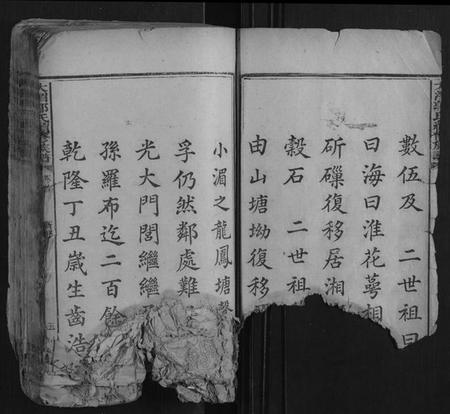 數伍及 二世祖曰
曰海曰淮花萼相
斫磔復移居湘
榖石 二世祖
由山塘坳復移
小湄之龍鳳塘
孚仍然鄰處難
光大門閭繼繼
孫羅布迄二百餘
乾隆丁丑歲生齒浩
五